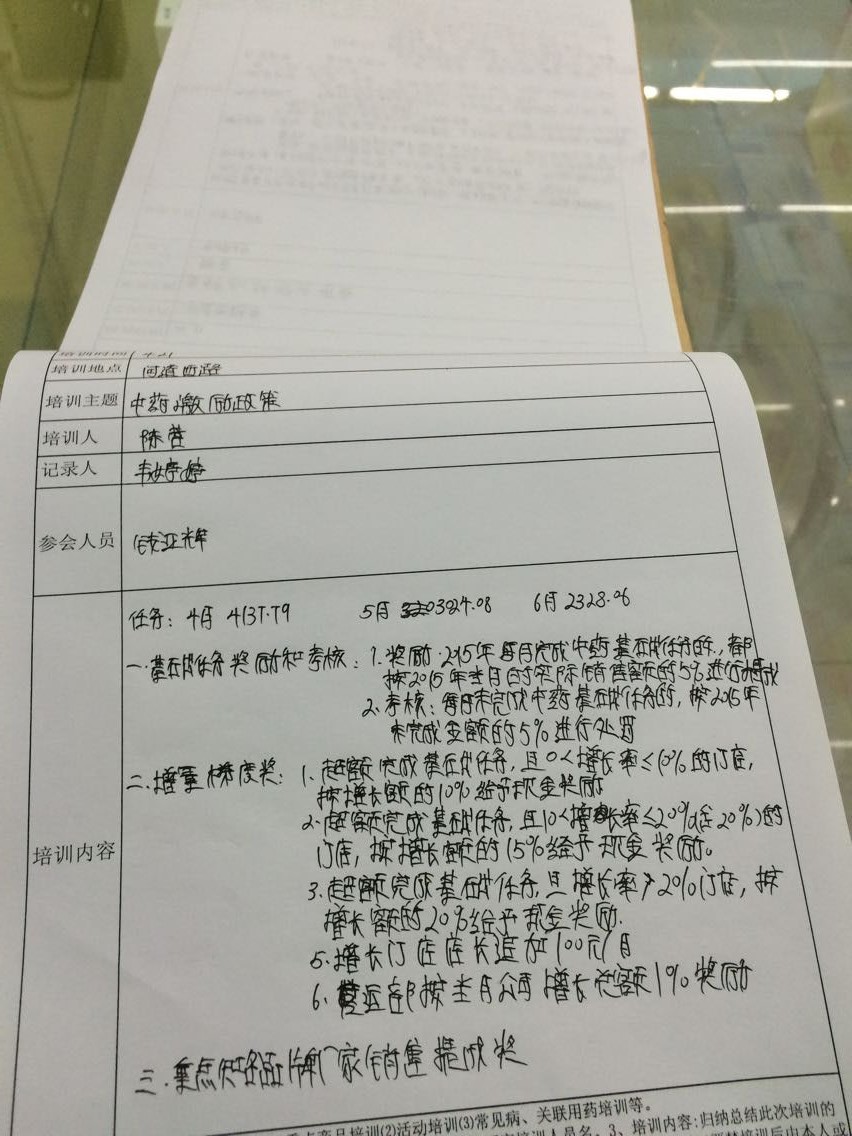 培训时间 4.21
培训地点 河渣西路
培训主题 中药激励政策
培训人 陈萱
记录人 韦婷婷
参会人员 钱亚辉
培训内容
任务: 4月 4137.79 5月 0384.08 6月 2328.06
一.基础任务奖励和考核: 1.奖励.2015年每月完成中药基础任务的,都
按2015年当月的实际销售额的5%进行提成
2.考核: 每月未完成中药基础任务的,按2015年
未完成差额的5%进行处罚
二.增量梯度奖: 1.超额完成基础任务,且0<增长率≤10%的门店,
按增长额的10%给予现金奖励
2.超额完成基础任务,且10<增长率≤20%(含20%)的
门店,按增长额的15%给予现金奖励。
3.超额完成基础任务,且增长率>20%门店,按
增长额的20%给予现金奖励.
5.增长门店店长追加100元/月
6.营运部按当月公司增长总额1%奖励
三.重点知名品牌厂家销售提成奖
产品培训(2)活动培训(3)常见病、关联用药培训等。
培训人员名。3、培训内容:归纳总结此次培训的
培训后由本人或